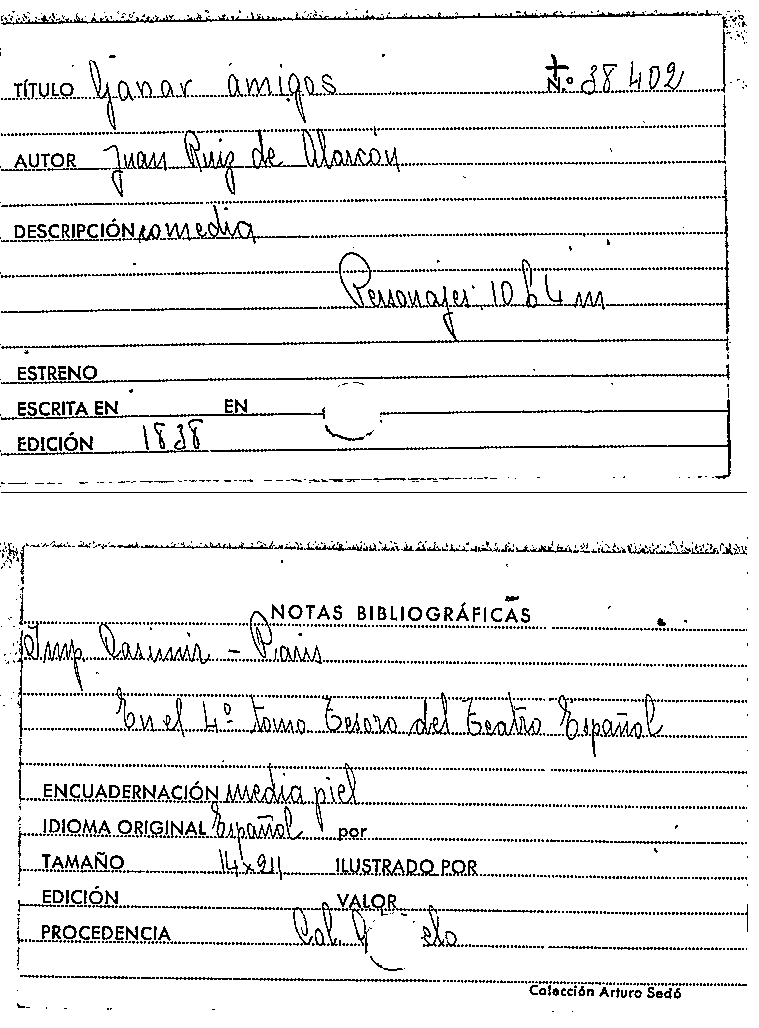 TÍTULO Ganar amigos N.º 38402
AUTOR Juan Ruiz de Alarcón
DESCRIPCIÓN comedia
Personajes: 10 h 4 m
ESTRENO
ESCRITA EN EN
EDICIÓN 1838
NOTAS BIBLIOGRÁFICAS
Imp Casimir - Paris
En el 4º tomo Tesoro del Teatro Español
ENCUADERNACIÓN media piel
IDIOMA ORIGINAL Español por
TAMAÑO ILUSTRADO POR
EDICIÓN VALOR
PROCEDENCIA Col.
Colección Arturo Sedó